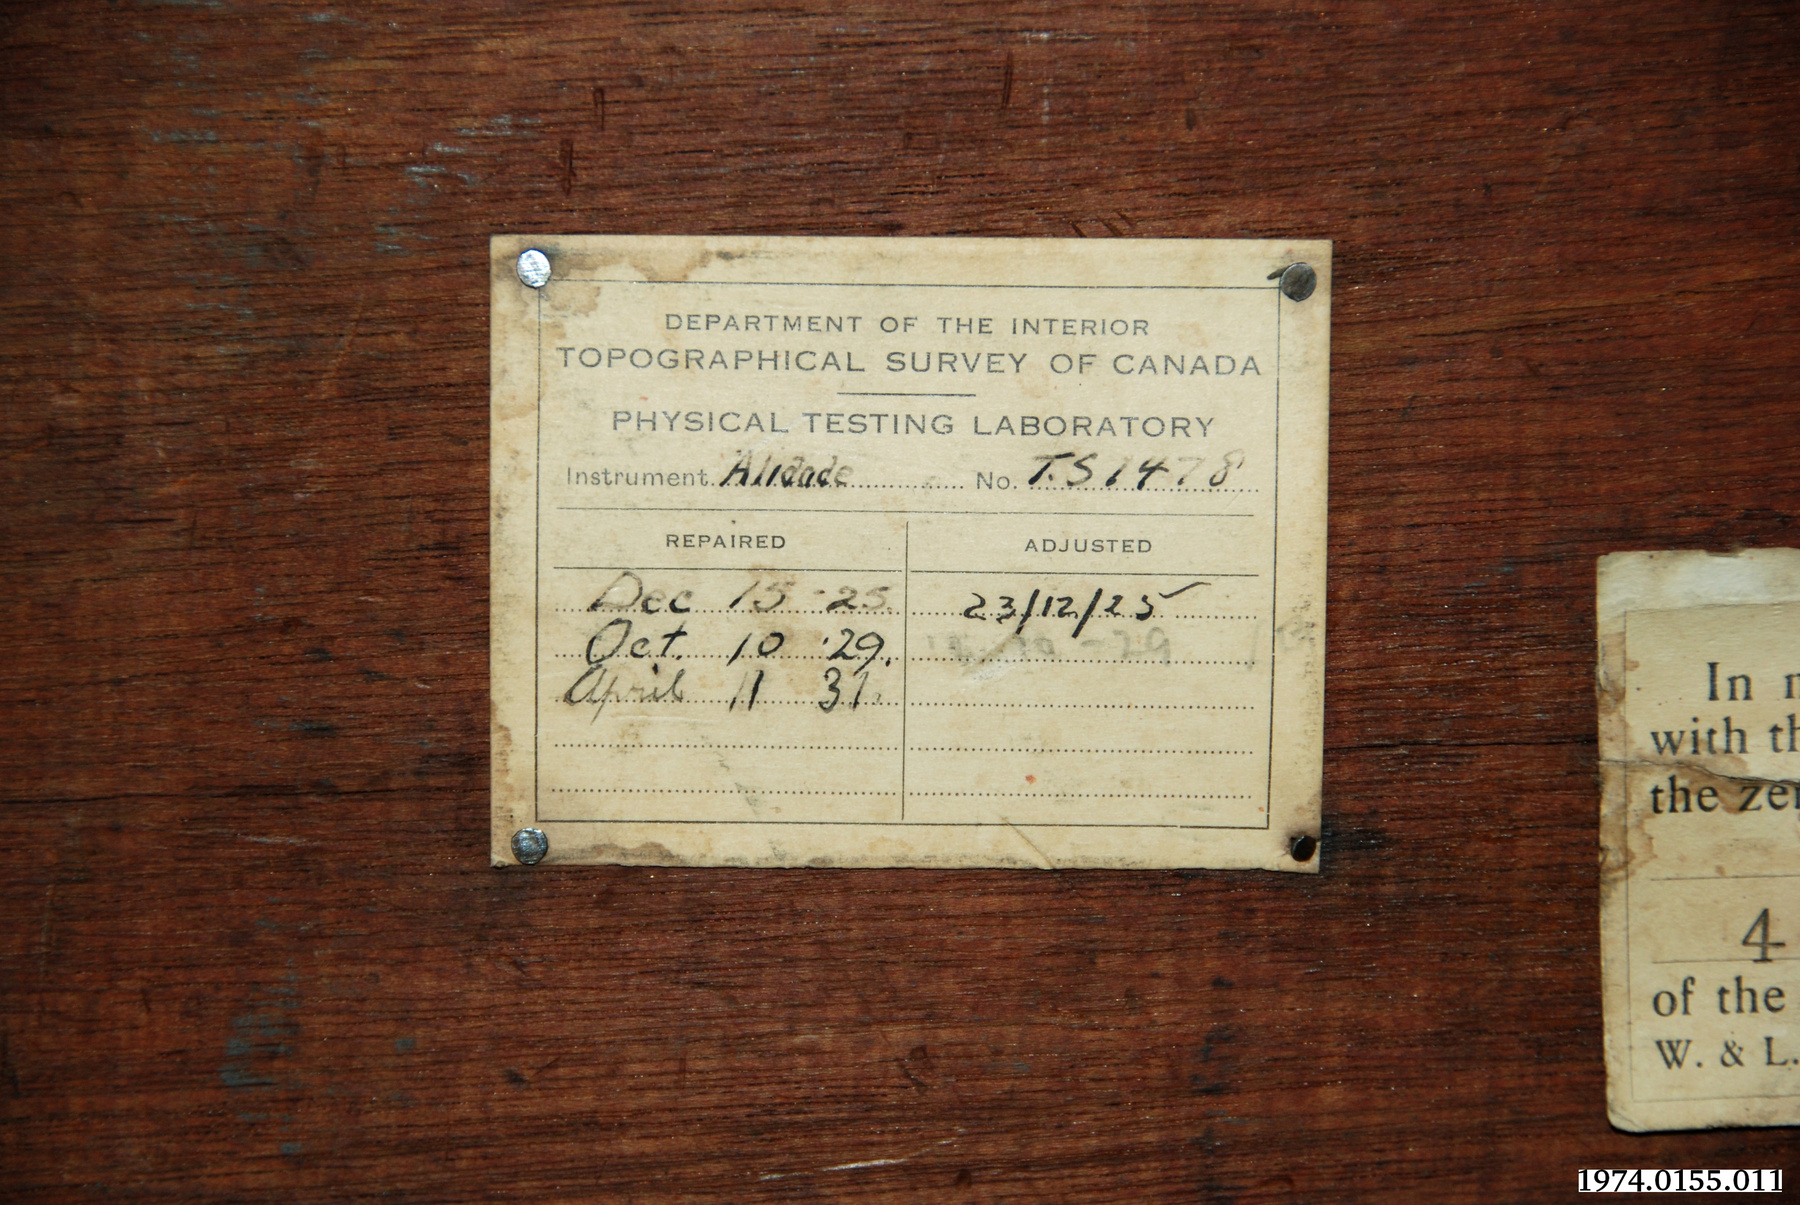 DEPARTMENT OF THE INTERIOR
TOPOGRAPHICAL SURVEY OF CANADA
PHYSICAL TESTING LABORATORY
Instrument Alidade No. T.S 1478
REPAIRED ADJUSTED
Dec 15 - 25. 23/12/25
Oct. 10 '29. - 29
April 11 31.
In
with
the
4
of the
W. & L.
1974.0155.011